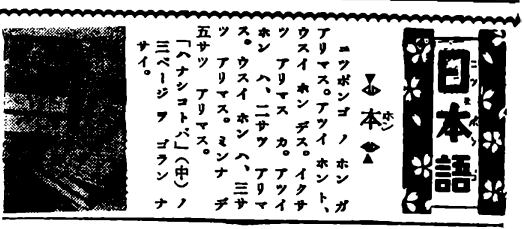 日本語
ニッポンゴ
本
ホン
ニツポンゴ ノ ホン ガ
アリマス。アツイ ホント、
ウスイ ホン デス。イクサ
ツ アリマス カ。アツイ
ホン ハ、二サツ アリマ
ス。ウスイ ホン ハ、三サ
ツ アリマス。ミンナ デ
五サツ アリマス。
「ハナシコトバ」(中)ノ
三ページ ヲ ゴラン ナ
サイ。